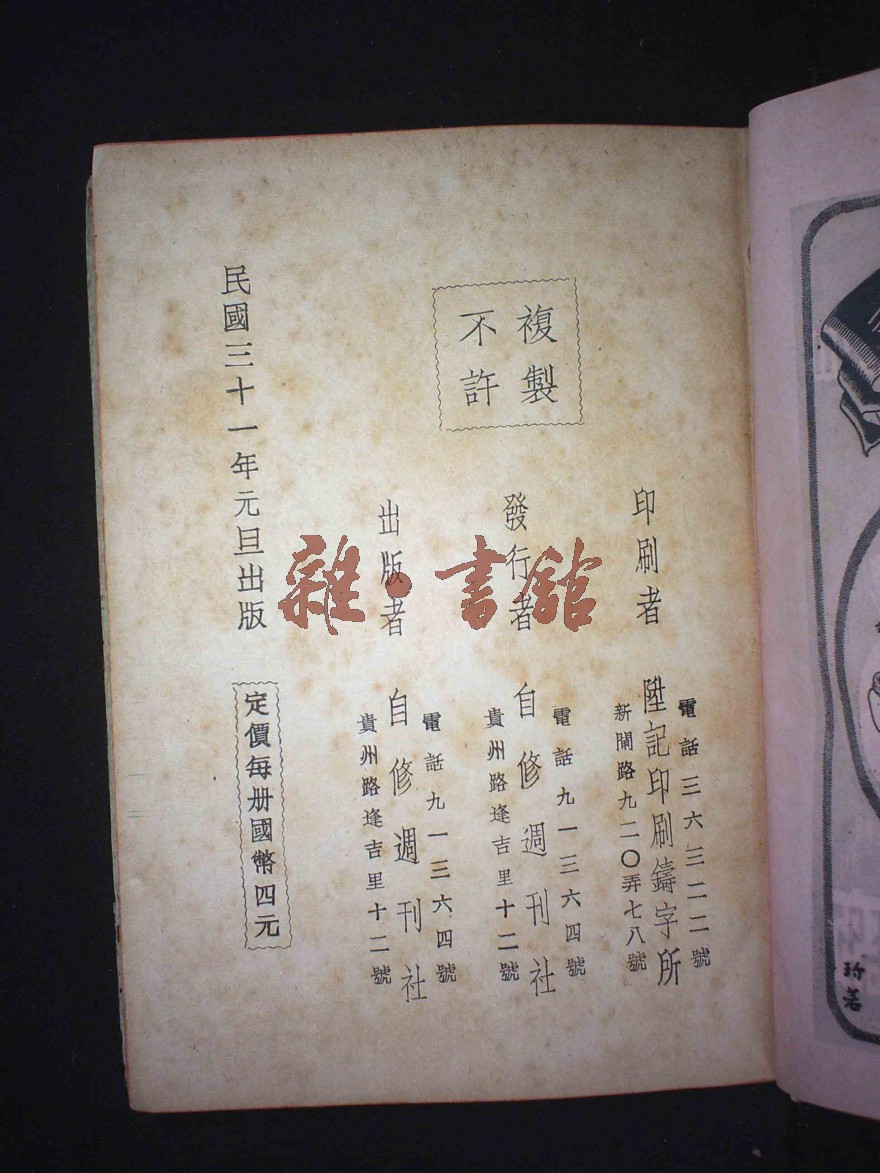 複製
不許
印刷者
電話三六三二二號
陞記印刷鑄字所
新閘路九二〇弄七八號
發行者
電話九一三六四號
自修週刊社
貴州路逢吉里十二號
出版者
電話九一三六四號
自修週刊社
貴州路逢吉里十二號
民國三十一年元旦出版
定價每册國幣四元
雜·書舘